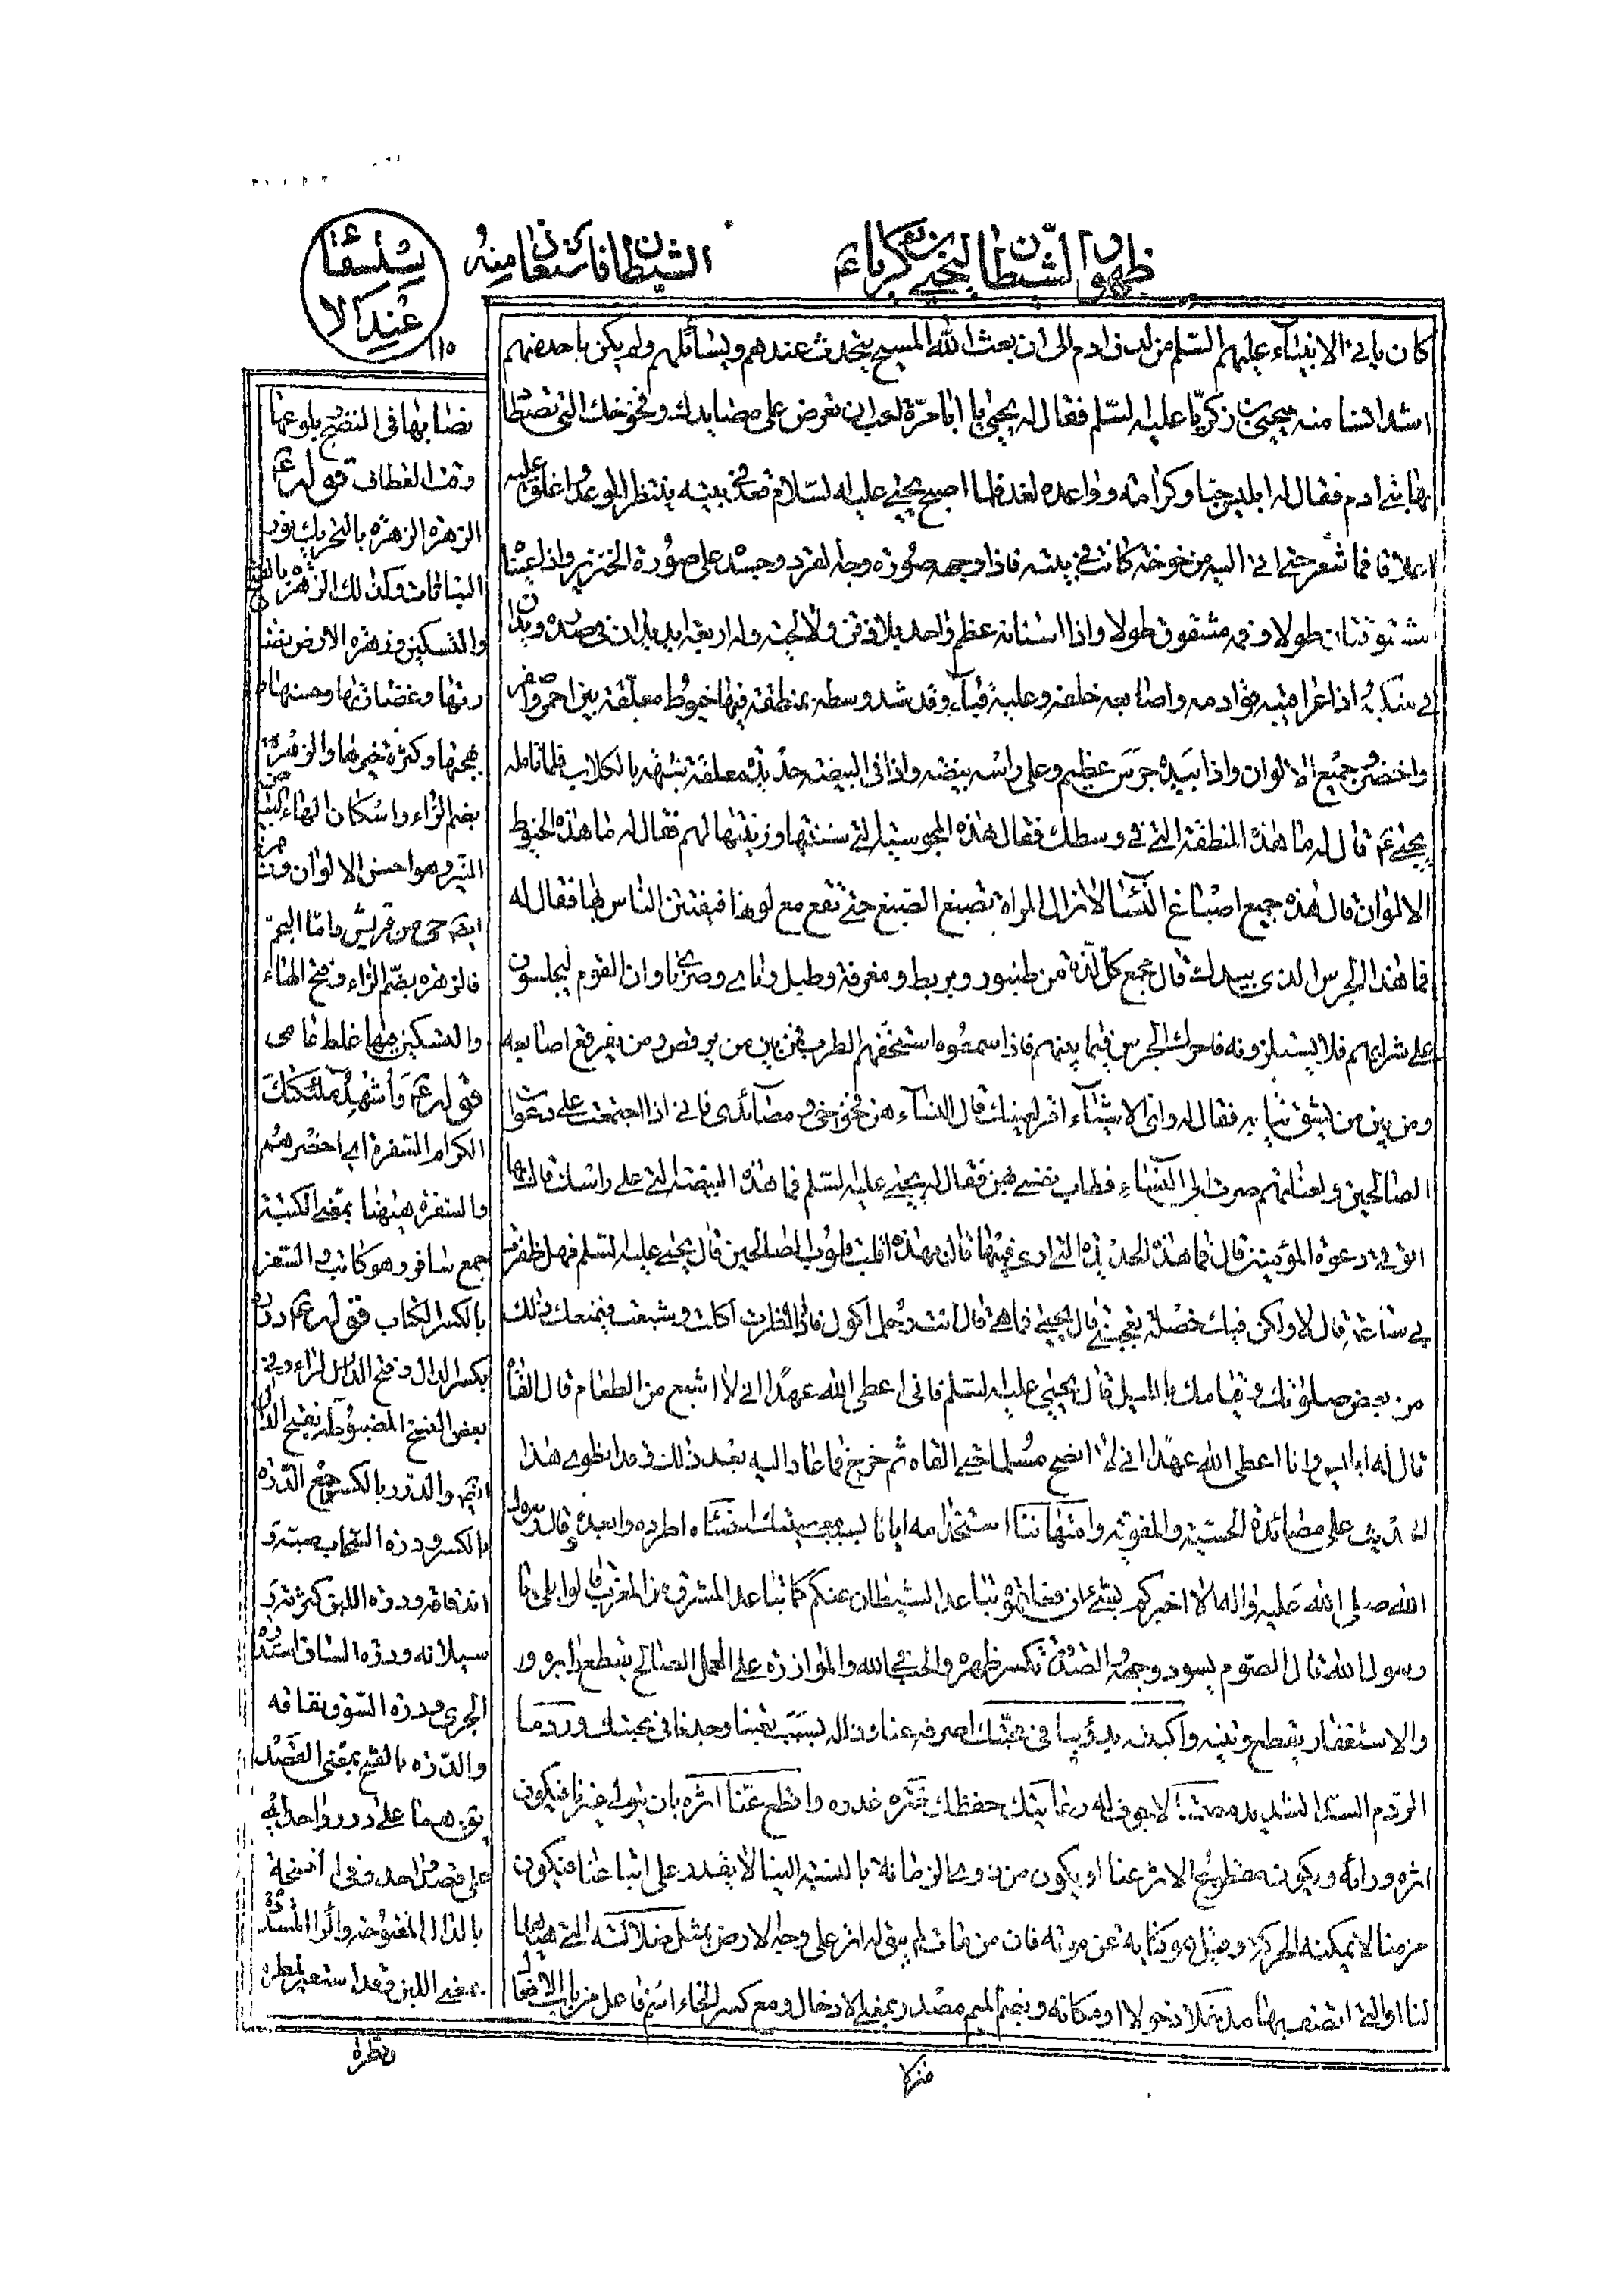 ظهور الشيطان ليحيى بن زكريا ع
الشيطان فاستعاذ منه
عند الا
١١٥
كان ياتي الانبياء عليهم السّلم من لدن ادم الى ان بعث الله المسيح يتحدث عندهم ويسائلهم ولم يكن باحد منهم
اشد انسا منه بيحيى بن زكريّا عليه السّلم فقال له يحيى يا ابا مرّة احب ان تعرض على مصايدك وفخوخك التى تصطاد
بها بنى ادم فقال له ابليس حبّا وكرامة وواعده لغد فلما اصبح يحيى عليه السّلام قعد في بيته ينتظر الموعد واغلق عليه
اغلاقا فما شعر حتى اتى اليه من خوخة كانت في بيته فاذا وجهه صورة وجه القرد وجسده على صورة الخنزير واذا عيناه
مشقوقتان طولا وفمه مشقوق طولا واذا اسنانه عظم واحد بلا ذقن ولا لحية وله اربعة ايد يدان في صدره ويدان
في منكبه اذا عراقيبه قوادمه واصابعه خلفه وعليه قباء وقد شد وسطه بمنطقة فيها خيوط معلّقة بين احمر واصفر
واخضر وجميع الالوان واذا بيده جرس عظيم وعلى راسه بيضة واذا فى البيضة حديدة معلقة شبيهة بالكلاب فلما تامله
يحيى ع قال له ما هذه المنطقة التى في وسطك فقال هذه المجوسية التى سننتها وزينتها لهم فقال له ما هذه الخيوط
الالوان قال هذه جميع اصباغ النساء لا تزال المراة تصبغ الصبغ حتى تقع مع لونها فيفتتن الناس بها فقال له
فما هذا الجرس الذي بيدك قال مجمع كل لذة من طنبور وبربط ومعزفة وطبل وناى وصرناى وان القوم ليجلسون
على شرابهم فلا يستلذونه فاحرك الجرس فيما بينهم فاذا سمعوه استخفهم الطرب فمن بين من يرقص ومن يفرقع اصابعه
ومن بين من يشق ثيابه فقال له واى الاشياء اقر لعينك قال النساء هن فخوخى ومصائدى فانى اذا اجتمعت على دعوات
الصالحين ولعناتهم صرت الى النساء فطاب نفسى بهن فقال له يحيى عليه السلم فما هذه البيضة التى على راسك قال بها
اتوقى دعوة المؤمنين قال فما هذه الحديدة التى ارى فيها قال بهذه اقلب قلوب الصالحين قال يحيى عليه السلم فهل ظفرت
بي ساعة قال لا ولكن فيك خصلة تعجبنى قال يحيى فما هى قال انت رجل اكول فاذا افطرت اكلت وشبعت فيمنعك ذلك
من بعض صلوتك وقيامك بالليل قال يحيى عليه السلم فانى اعطى الله عهدا انى لا اشبع من الطعام قال القاه
قال له ابليس وانا اعطى الله عهدا انى لا انصح مسلما حتى القاه ثم خرج فما عاد اليه بعد ذلك وقد انطوى هذا
الحديث على مصائده الحسيّة والمعنوية وامنها ننا استخدامه ايانا بسبب معصيتك اخساه اطرده وابعده وقال رسول
الله صلى الله عليه واله الا اخبركم بشئ ان فعلتموه تباعد الشيطان عنكم كما تباعد المشرق من المغرب قالوا بلى يا
رسول الله قال الصّوم يسود وجهه والصدقة تكسر ظهره والحب في الله والموازرة على العمل الصالح يقطع دابره
والاستغفار يقطع وتينه واكبته بدؤبنا فى محبّتك اصرفه عنا وذلّله بسبب تعبنا وجدّنا فى محبتك وردما
الردم السد الشديد
اثره وراءه ويكون مقطوع الاثر عنا او يكون من دعى الزمانة بالنسبة الينا لا يقدر على اتباعنا فيكون
مزمنا لا يمكنه الحركة وقيل هو كناية عن موته فان من مات لم يبق له اثر على وجه الارض بمثل ضلالته التى
لنا او التى اتصف بها مدخلا دخولا او مكانه وبضم الميم مصدر بمعنى الادخال ومع كسر الخاء اسم فاعل من باب الافعال
منزلا
نصابها فى النضج بلوغها
وقت القطاف قوله ع
الزهرة الزهرة بالتحريك نور
النبات وكذلك الزهرة بالفتح
والتسكين وزهرة الارض نضا
رتها وغضارتها وحسنها و
بهجتها وكثرة خيرها والزهرة
بضم الزاء واسكان الهاء البياض
النير وهو احسن الالوان وزهرة
ايضا حى من قريش واما النجم
فالزهرة بضم الزاء وفتح الهاء
والتسكين فيها غلط عامى
قوله ع وأشهد ملائكتك
الكرام السفرة اى احضرهم
والسفرة هيهنا بمعنى الكتبة
جمع سافر وهو كاتب والسفر
بالكسر الكتاب قوله ع درره
بكسر الدال وفتح الراء وفى
بعض النسخ المضبوطة بفتح الدال
ايضا والدرر بالكسر جمع الدرّة
بالكسر ودرّة السحاب صبّه و
اندفاقه ودرّة اللبن كثرته و
سيلانه ودرّة الساق استدارة
الجرى ودرّة السّوق نفاقه
والدّرّة بالفتح بمعنى القصد
يق هما على درر واحد اى
على قصد واحد وفى نسخة
بالدال المفتوحة والراء المشددة
بمعنى اللبن وقد استعير للمطر
نظرة